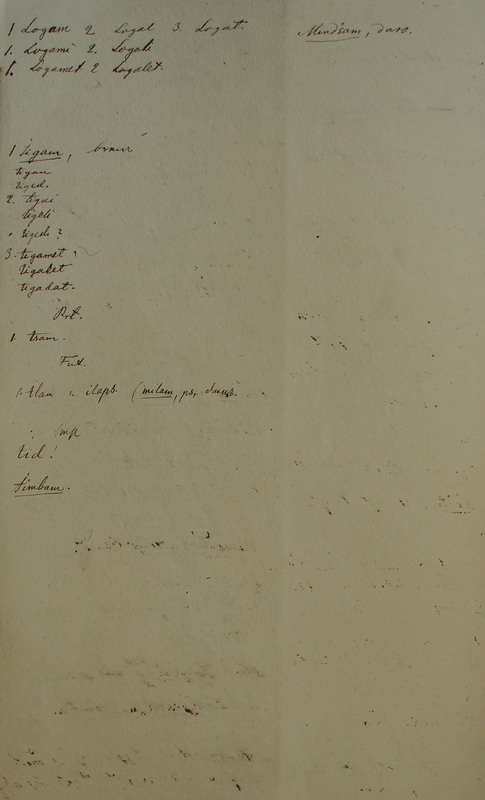 1 Logam 2 Logal 3. Logat. Mindsam, daro.
1. Logami 2. Logali
1. Logamet 2 Logalet.
1 tigam,
tigan
tigid.
2. tigai
tigali
tigidi ?
3. tigamet
tigalet
tigadat.
Prt.
1 tram.
Fut.
1. tlam ilaps. (milam, ps,
Imp
tid!
timbam.